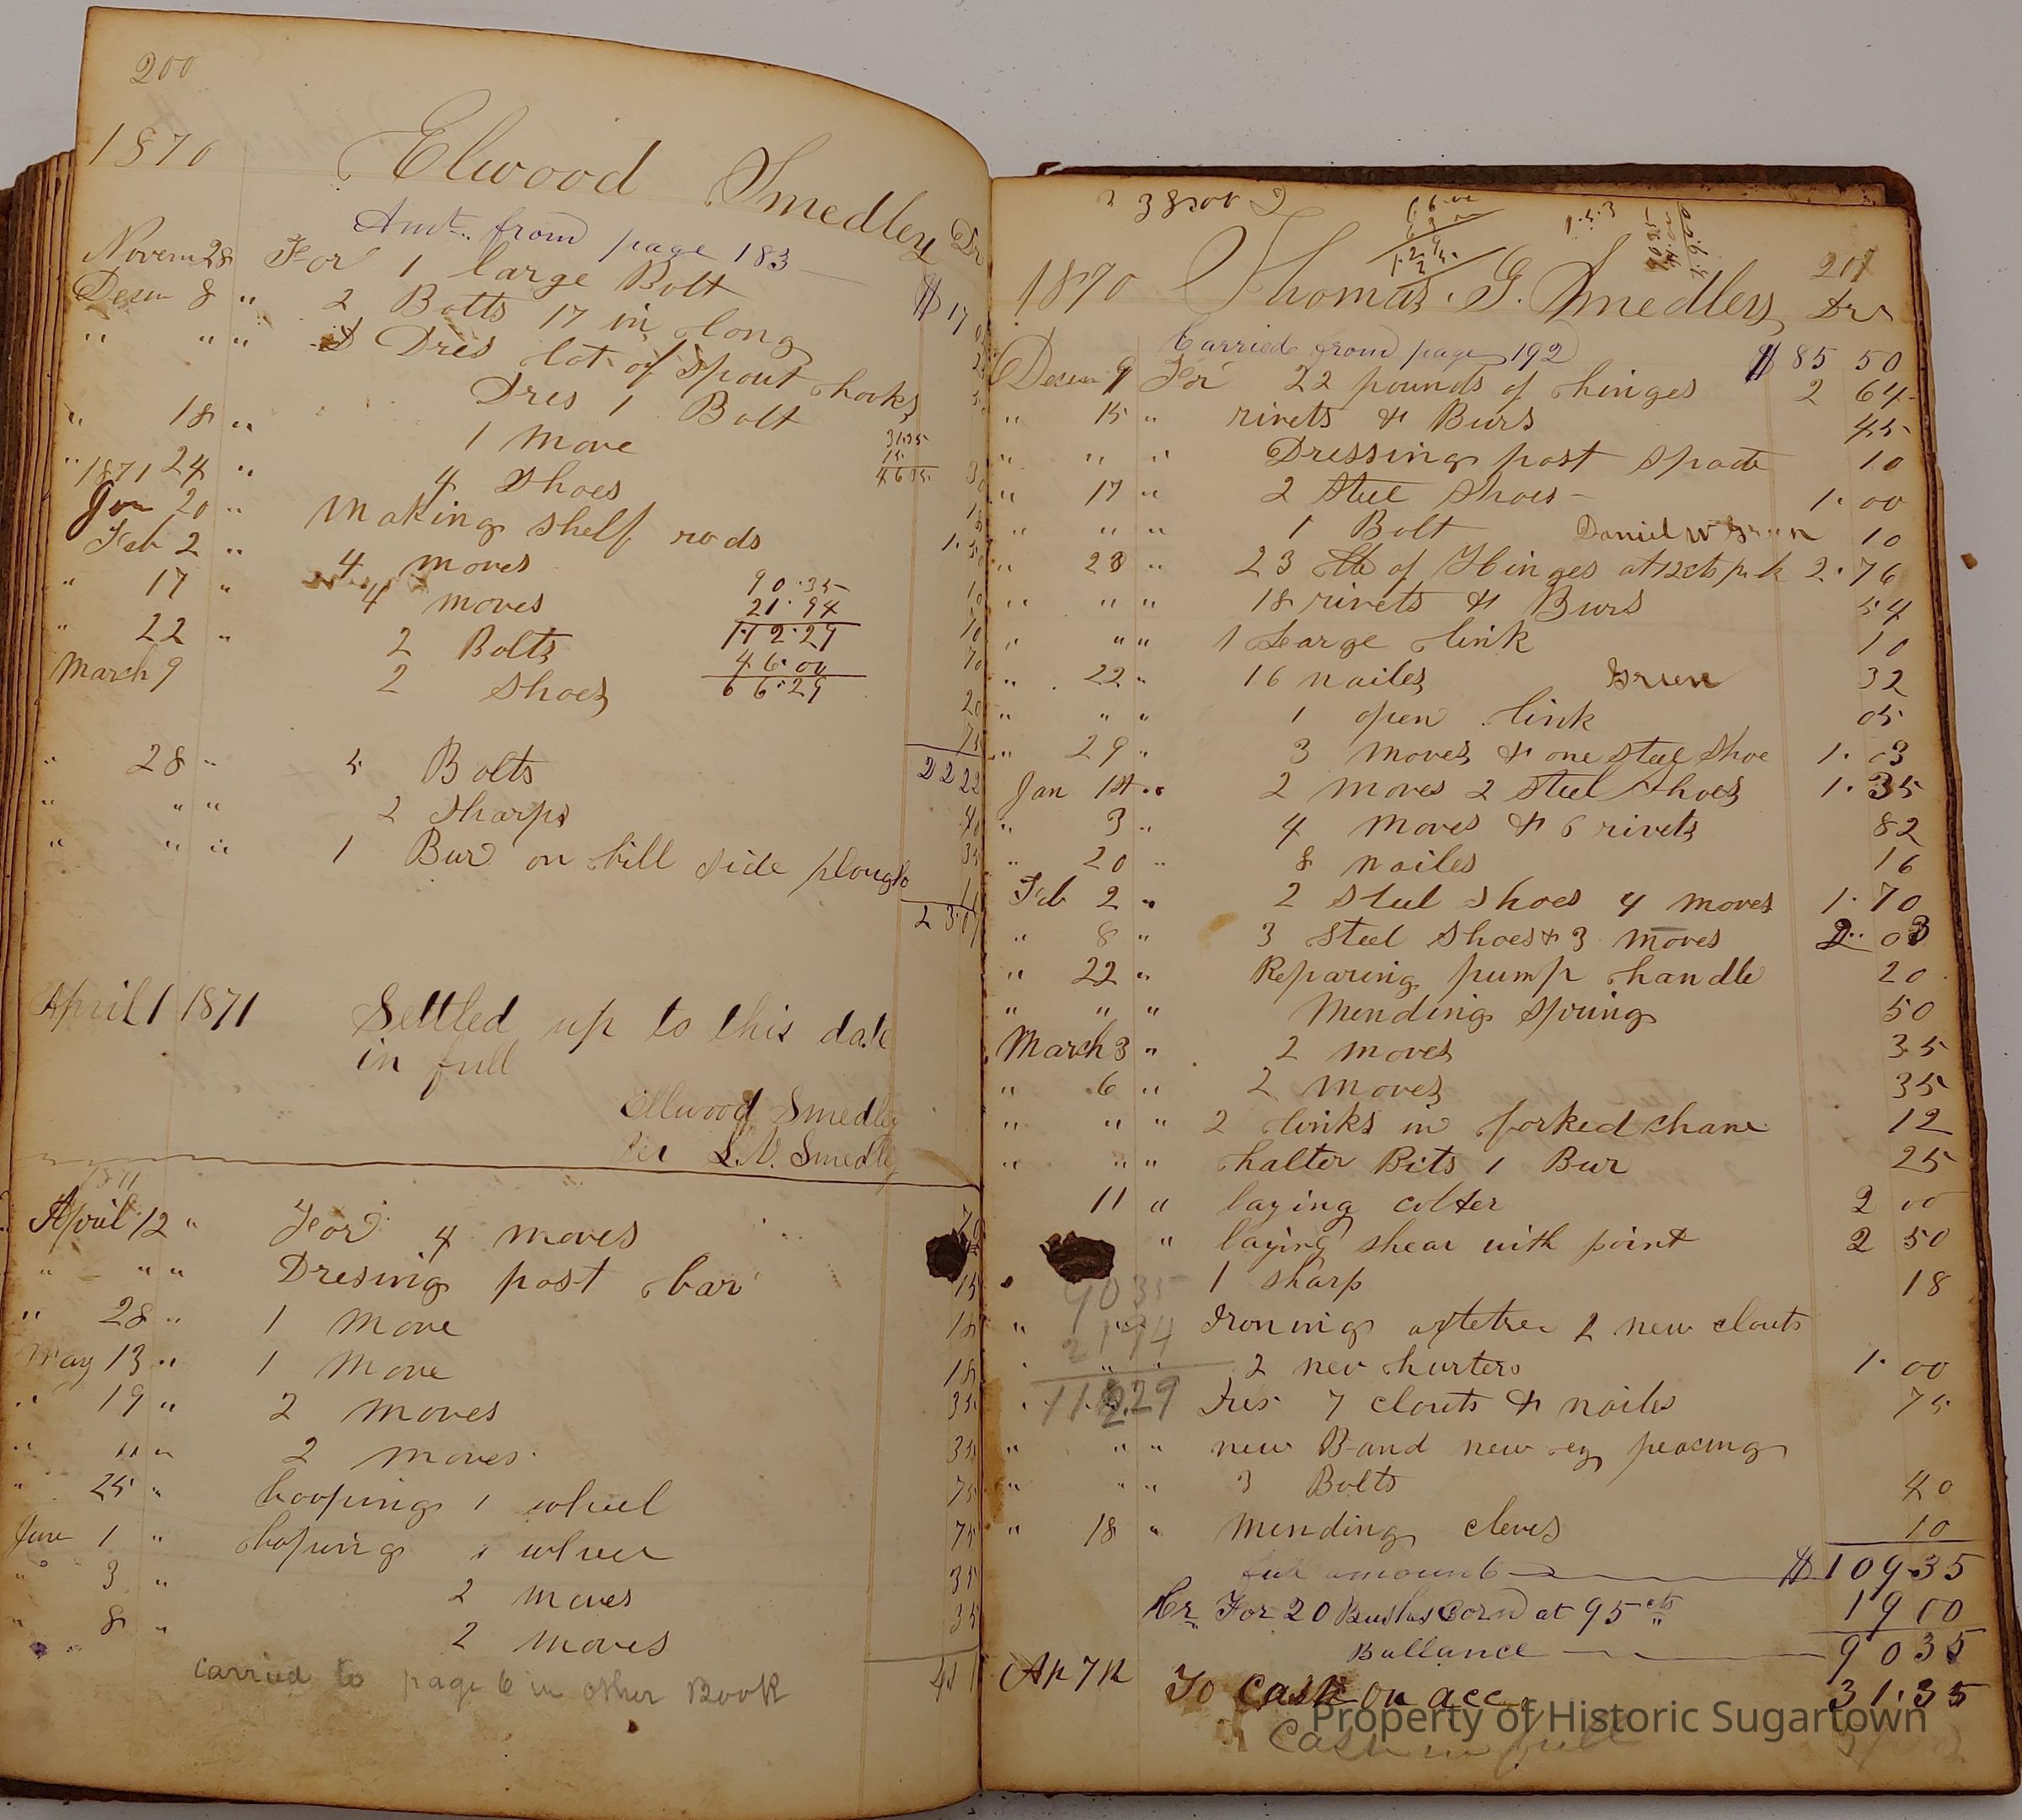 200
1870 Elwood Smedley Dr
Amt. from page 183
Novem 28 For 1 large Bolt $17
Decem 8 " 2 Bolts 17 in long
" " " Dres lot of Spout hooks
Dres 1 Bolt
" 18 " 1 move
31.35
15
46 35
" 24 " 4 Shoes
1871
Jan 20 " Making shelf rods 1.50
Feb 2 " 4 moves
" 17 " 4 moves
90.35
21.94
112.29
46.00
66.29
" 22 " 2 Bolts
March 9 2 Shoes
2222
" 28 " 5 Bolts
" " " 2 Sharps
" " " 1 Bur on hill side plough
April 1 1871 Settled up to this date
in full
Ellwood Smedley
Per L.V. Smedley
1871
April 12 " For 4 moves 70
" " " Dresing post bar 15
" 28 " 1 move 18
May 13 " 1 move 18
" 19 " 2 moves 35
" " " 2 moves 35
" 25 " hooping 1 wheel 75
June 1 " hoping 1 wheel 75
" 3 " 2 moves 35
" 8 " 2 moves 35
carried to page 6 in other Book
201
1870 Thomas G. Smedley Dr
Carried from page 192 $85 50
Decem 9 For 22 pounds of hinges 2 64
" 15 " rivets & Burs 45
" " " Dressing post spade 10
" 17 " 2 Steel Shoes 1.00
" " " 1 Bolt Daniel W Green 10
" 23 " 23 lb of Hinges at 12cts 2.76
" " " 18 rivets & Burs 54
" " " 1 Large link 10
" 22 " 16 nailes Green 32
" " " 1 open link 05
" 29 " 3 moves & one Steel Shoe 1.03
Jan 1st " 2 moves 2 Steel Shoes 1.35
" 3 " 4 moves & 6 rivets 82
" 20 " 8 nailes 16
Feb 2 " 2 Steel Shoes 4 moves 1.70
" 8 " 3 Steel Shoes & 3 moves 2.03
" 22 " Reparing pump handle 20
" " " Mending Spring 50
March 3 " 2 moves 35
" 6 " 2 moves 35
" " " 2 links in forked chane 12
" " " halter Bits 1 Bur 25
11 " laying colter 2 00
" laying shear with point 2 50
1 sharp 18
9035
2194
11229
" " " Ironing axtetree 2 new clouts
" " " 2 new hurters 1.00
" " " Dres 7 clouts & nailes 75
" " " new Band new
" " " 3 Bolts 40
" 18 " Mending cleves 10
full amount $109.35
Cr For 20 Bushes Corn at 95 cts 19 00
Ballance 90 35
Ap 7th To Cash on acc. 31.35
Cash in full
Property of Historic Sugartown